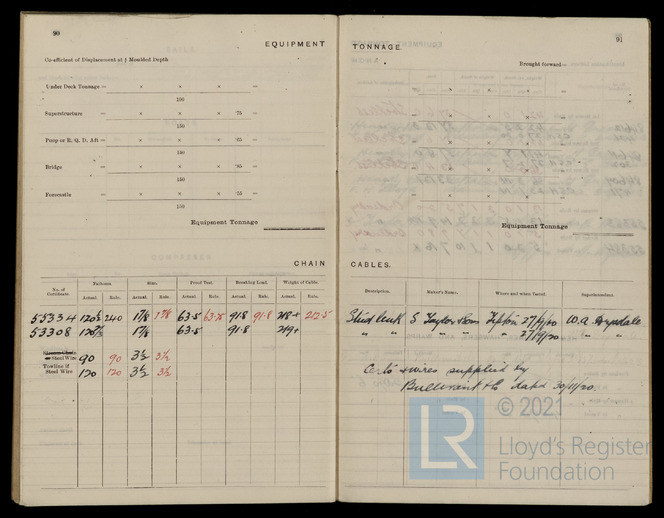 90
EQUIPMENT
Co-efficient of Displacement at ¾ Moulded Depth
Under Deck Tonnage = × × =
100
Superstructure × × × ·75 =
150
Poop or R, Q, D, AR = × × × ·65
150
Bridge × × × ·65 =
150
Forecastle × × × ·55 =
150
Equipment Tonnage
CHAIN
No. of Certificate. Fathoms. Size. Proof Test. Breaking Load. Weight of Cable.
Actual. Rule. Actual. Rule. Actual. Rule. Actual. Rule. Actual. Rule.
55334 120½ 240 1⅞ 1⅞ 63·5 63·5 91·8 91·8 218+ 212·5
53308 1⅞ 63·5 91·8 219+
Stream Chain
or Steel Wire 90 90 3½ 3½
Towline if
Steel Wire 120 120 3½ 3½
91
TONNAGE
Brought forward=
Equipment Tonnage
CABLES.
Description. Maker's Name. Where and when Tested. Superintendent.
Stud link S Taylor & Sons Tipton 27/9/20 W.A. Drysdale
" " " " " 27/9/20 " "
Certs & wires supplied by
Bullivant & Co dated 30/11/20.
LR
© 2021
Lloyd's Register
Foundation